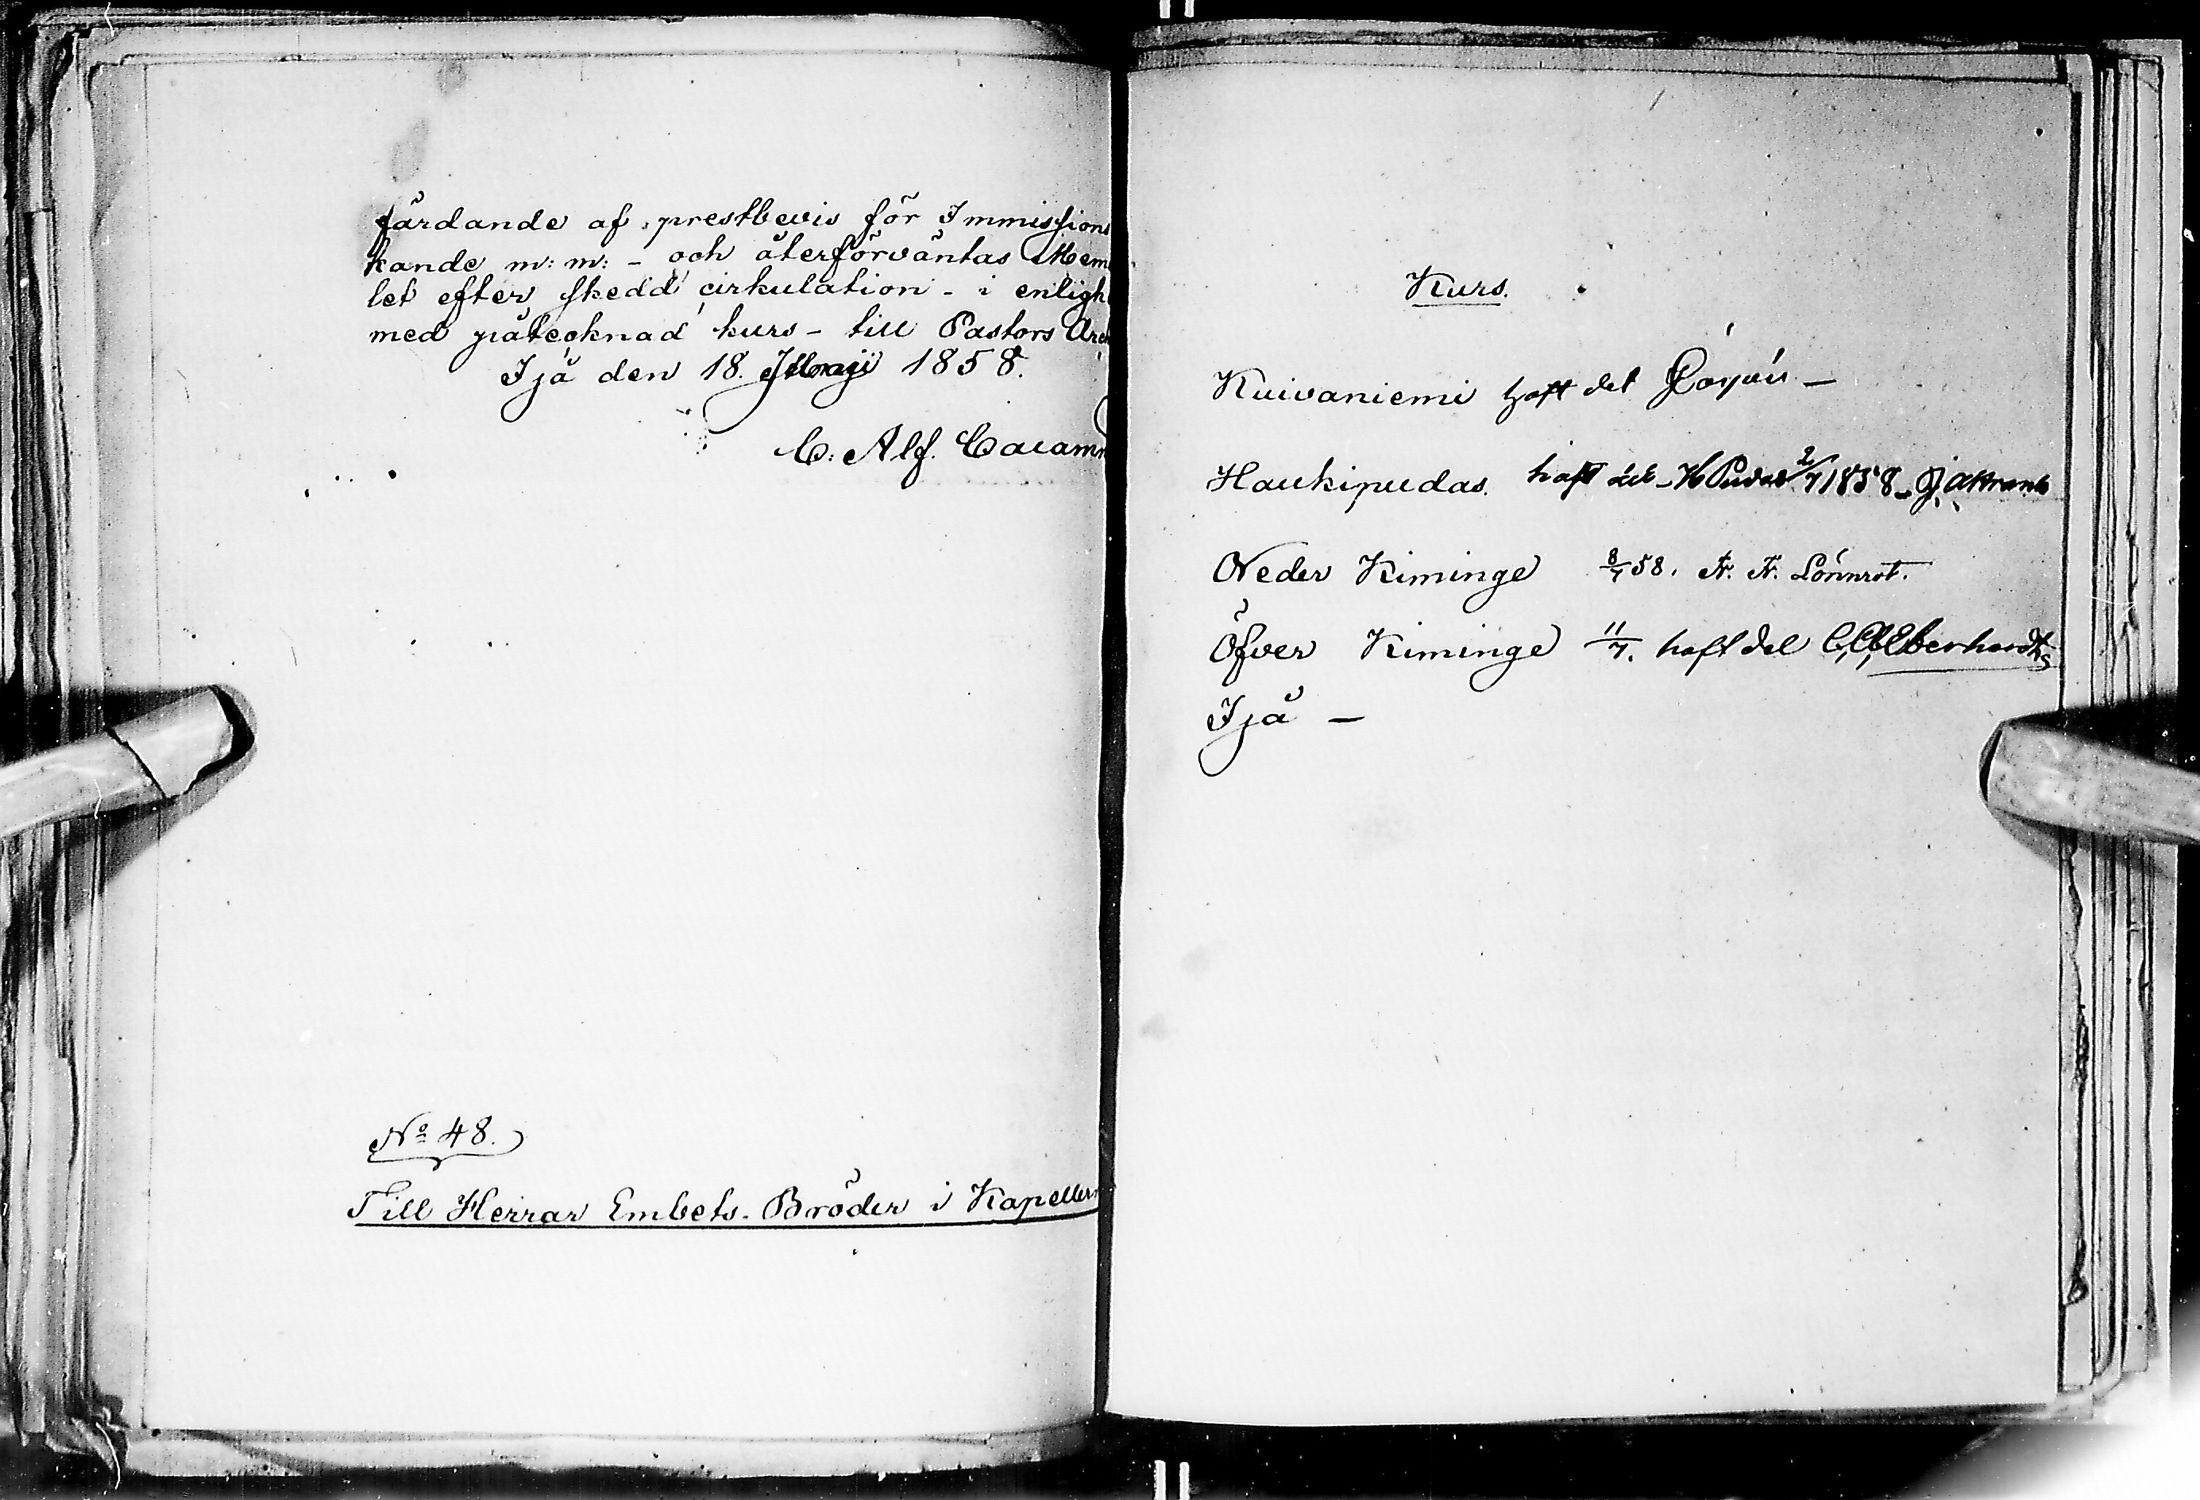 färdande af prestbevis för Immissions
kande m: m: - och återförväntas Mem
let efter skedd cirkulation - i enligh
med påtecknad kurs - till Pastors Arch
Ijå den 18. 1858.
C. Alf. Cacamn
No 48.
Till Herrar Embets-Bröder i Kapellern
Kurs.
Kuivaniemi haft det —
Haukipudas. haft det - H Pudas 2/7 1858 -
Neder Kiminge 8/7 58. A. A. Lönnrot.
Öfver Kiminge 11/7. haft det C, A, Eberhardts
Ijå —